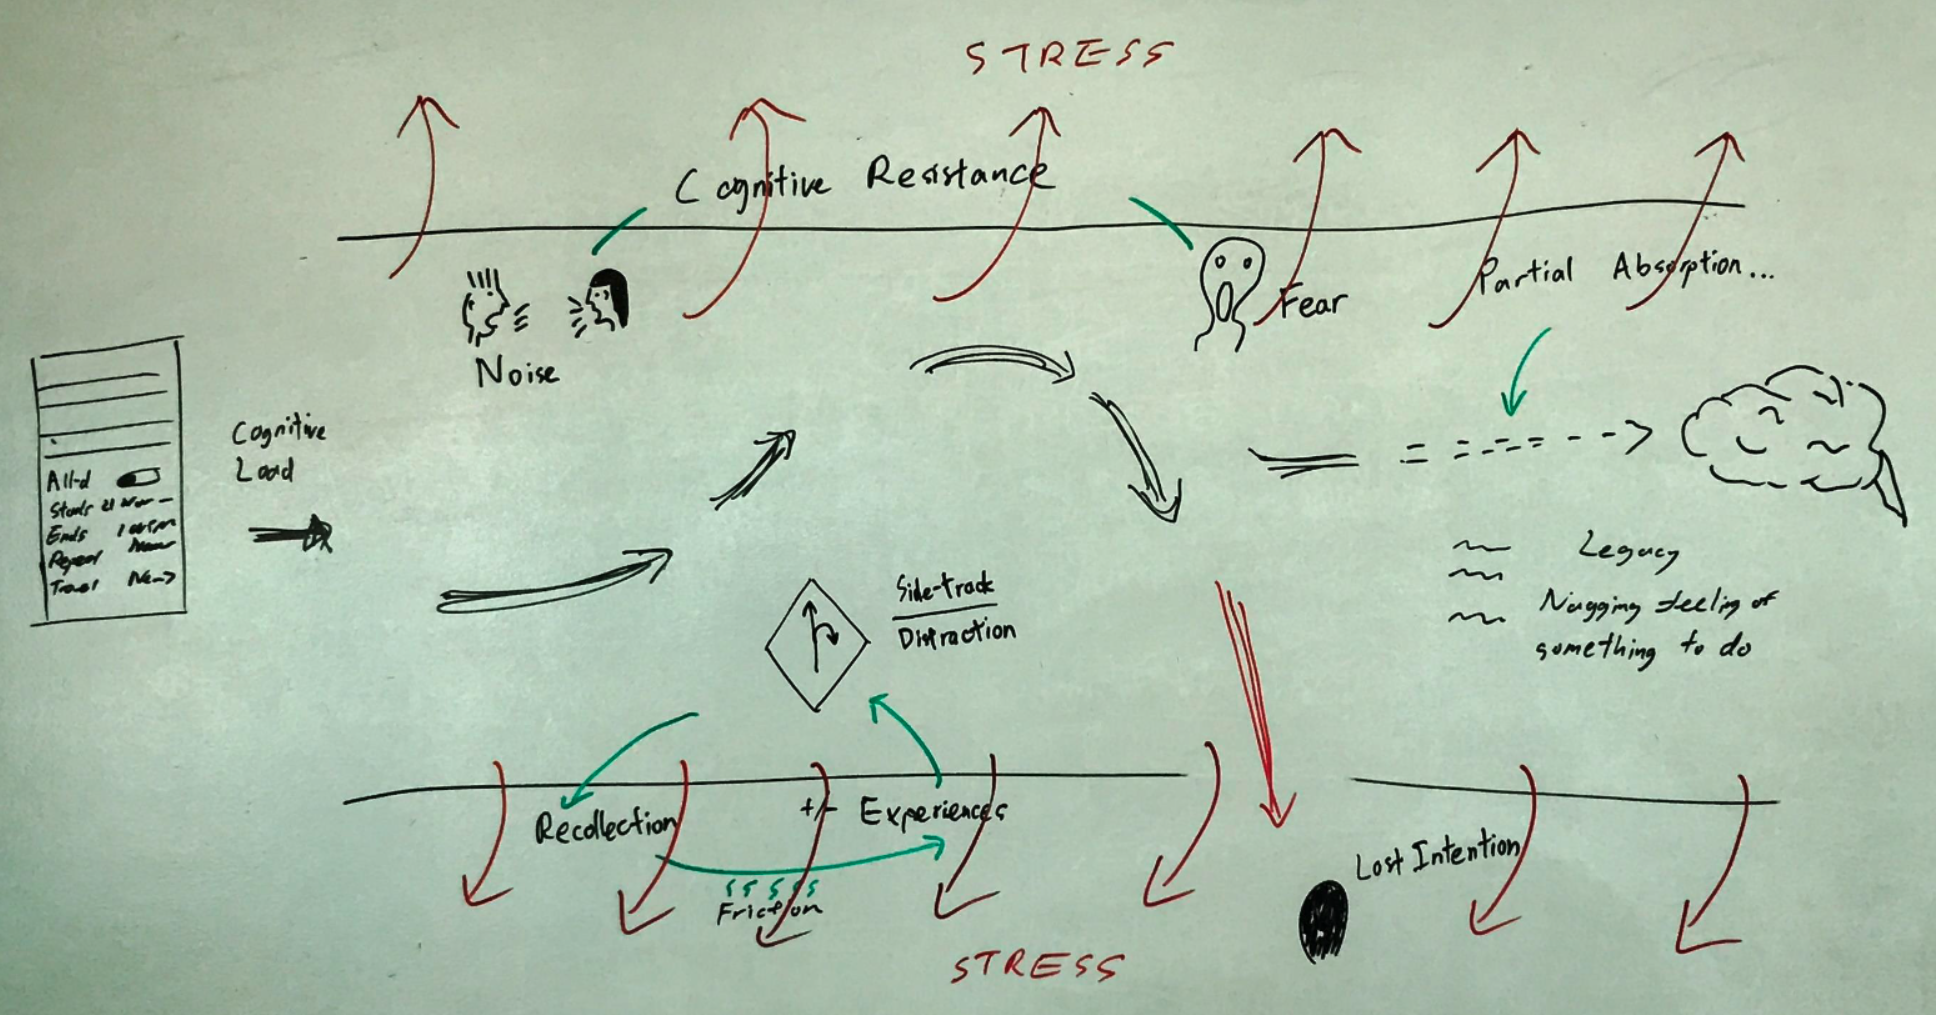 STRESS
Cognitive Resistance
Noise
Fear
Partial Absorption...
Cognitive
Load
All-d
Ends
Repeat
Travel
Side-track
Distraction
Legacy
Nagging feeling of
something to do
Recollection
+/- Experiences
Friction
Lost Intention
STRESS